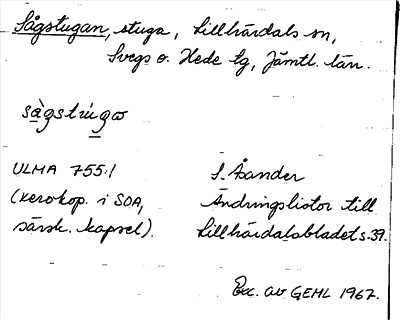 Sågstugan, stuga, Lillhärdals sn,
Svegs o. Hede tg, Jämtl. län.
sàgstúgω
ULMA 755:1
(xerokop. i SOA,
särsk. kapsel).
S. Åsander
Ändringslistor till
Lillhärdalsbladet s.39.
Exc. av GEHL 1967.